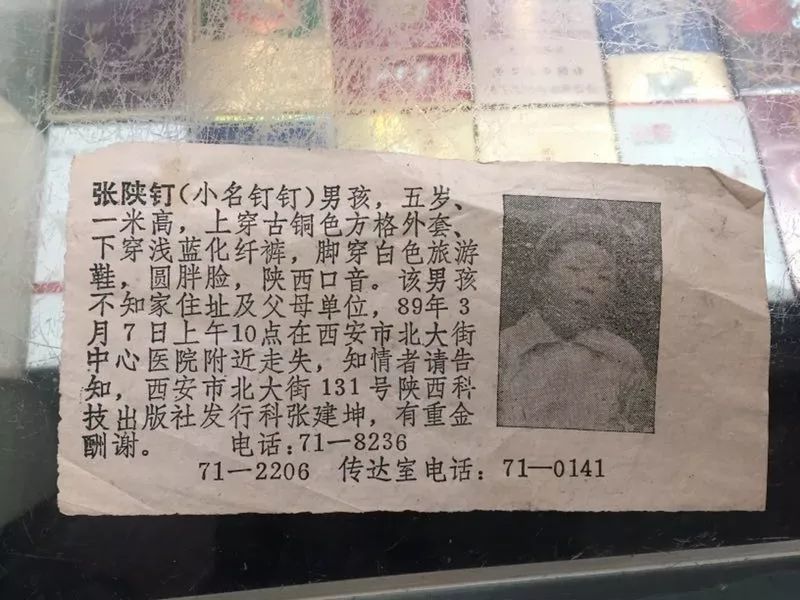 张陕钉(小名钉钉)男孩，五岁、
一米高，上穿古铜色方格外套、
下穿浅蓝化纤裤，脚穿白色旅游
鞋，圆胖脸，陕西口音。该男孩
不知家住址及父母单位，89年3
月7日上午10点在西安市北大街
中心医院附近走失，知情者请告
知，西安市北大街131号陕西科
技出版社发行科张建坤，有重金
酬谢。 电话:71—8236
71—2206 传达室电话：71—0141